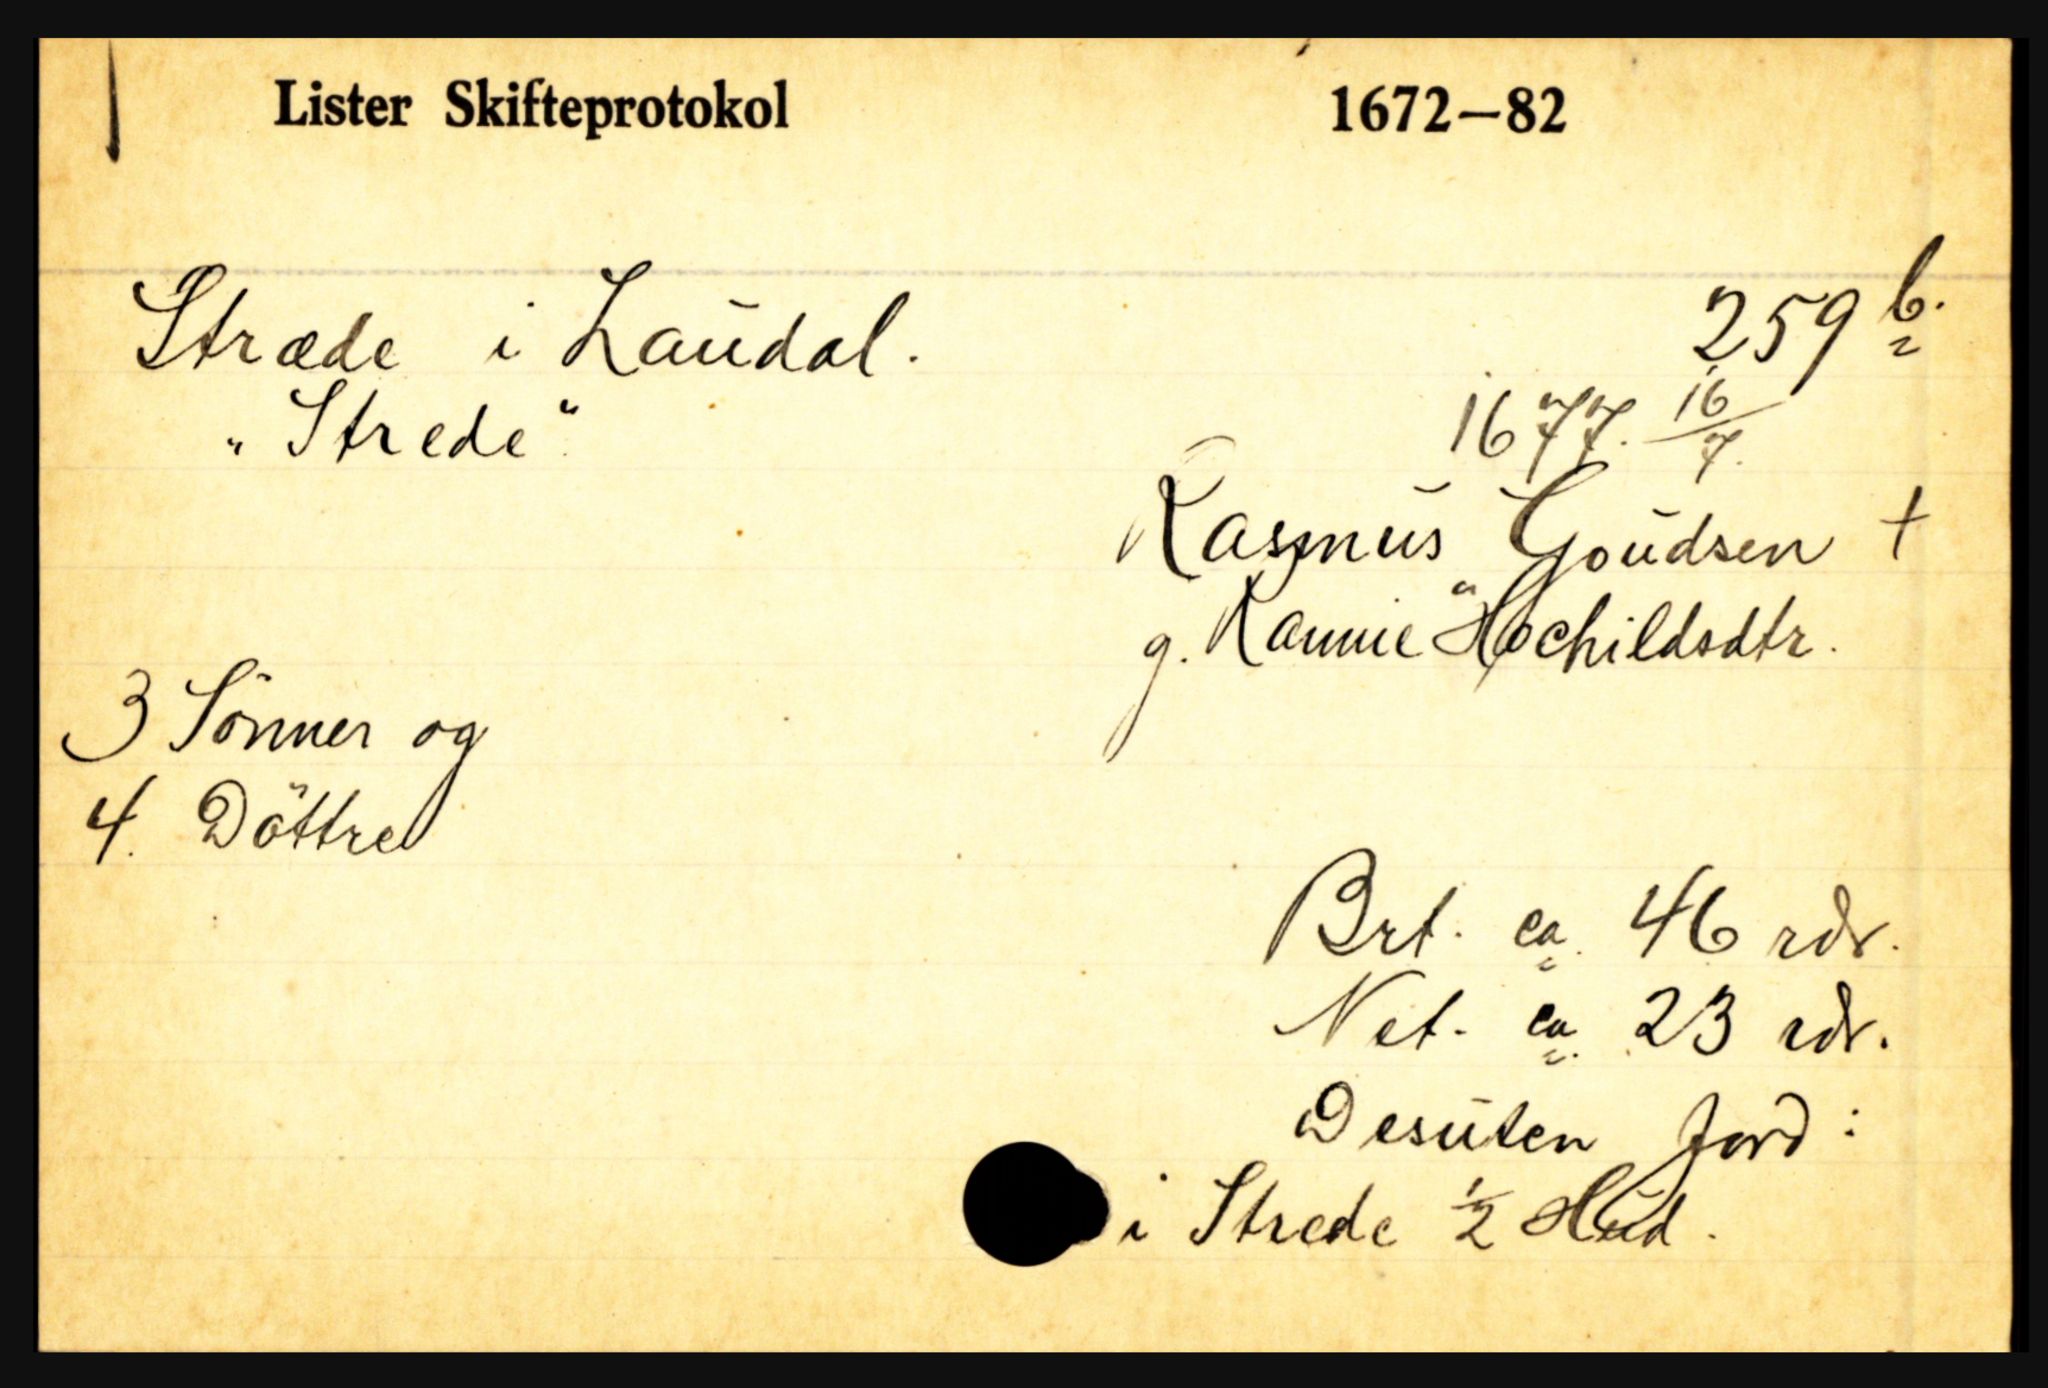 Lister Skifteprotokol 1672–82
Stræde i Laudal. 259 b.
"Strede" 1677. 16/7.
Rasmus Goudsen +
g. Rannie "Hochildsdtr.
3 Sönner og
4. Döttre
Brt. ca. 46 rdr.
Net. ca. 23 rdr.
Desuten Jord:
i Strede 1/2 Hud.